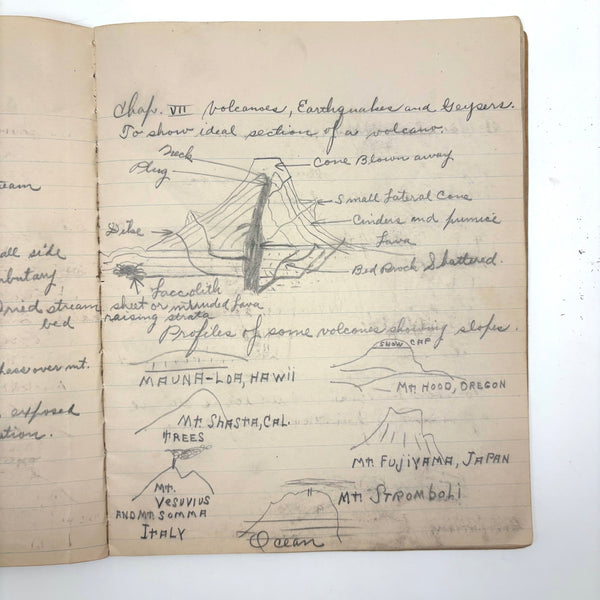 eam
all side
butary
Dried stream
bed
ass over mt.
exposed
tion.
Chap. VII Volcanoes, Earthquakes and Geysers.
To show ideal section of a volcano.
Neck
Plug
Cone Blown away
Small Lateral Cone
Cinders and pumice
Dike
Lava
Bed Rock Shattered.
Laccolith
sheet or intruded lava
raising strata
Profiles of some volcanoes showing slopes.
SNOW CAP
MAUNA-LOA, HAWII
MT. HOOD, OREGON
MT. SHASTA, CAL.
TREES
MT. FUJIYAMA, JAPAN
MT.
VESUVIUS
AND MT. SOMMA
ITALY
MT. STROMBOLI
Ocean